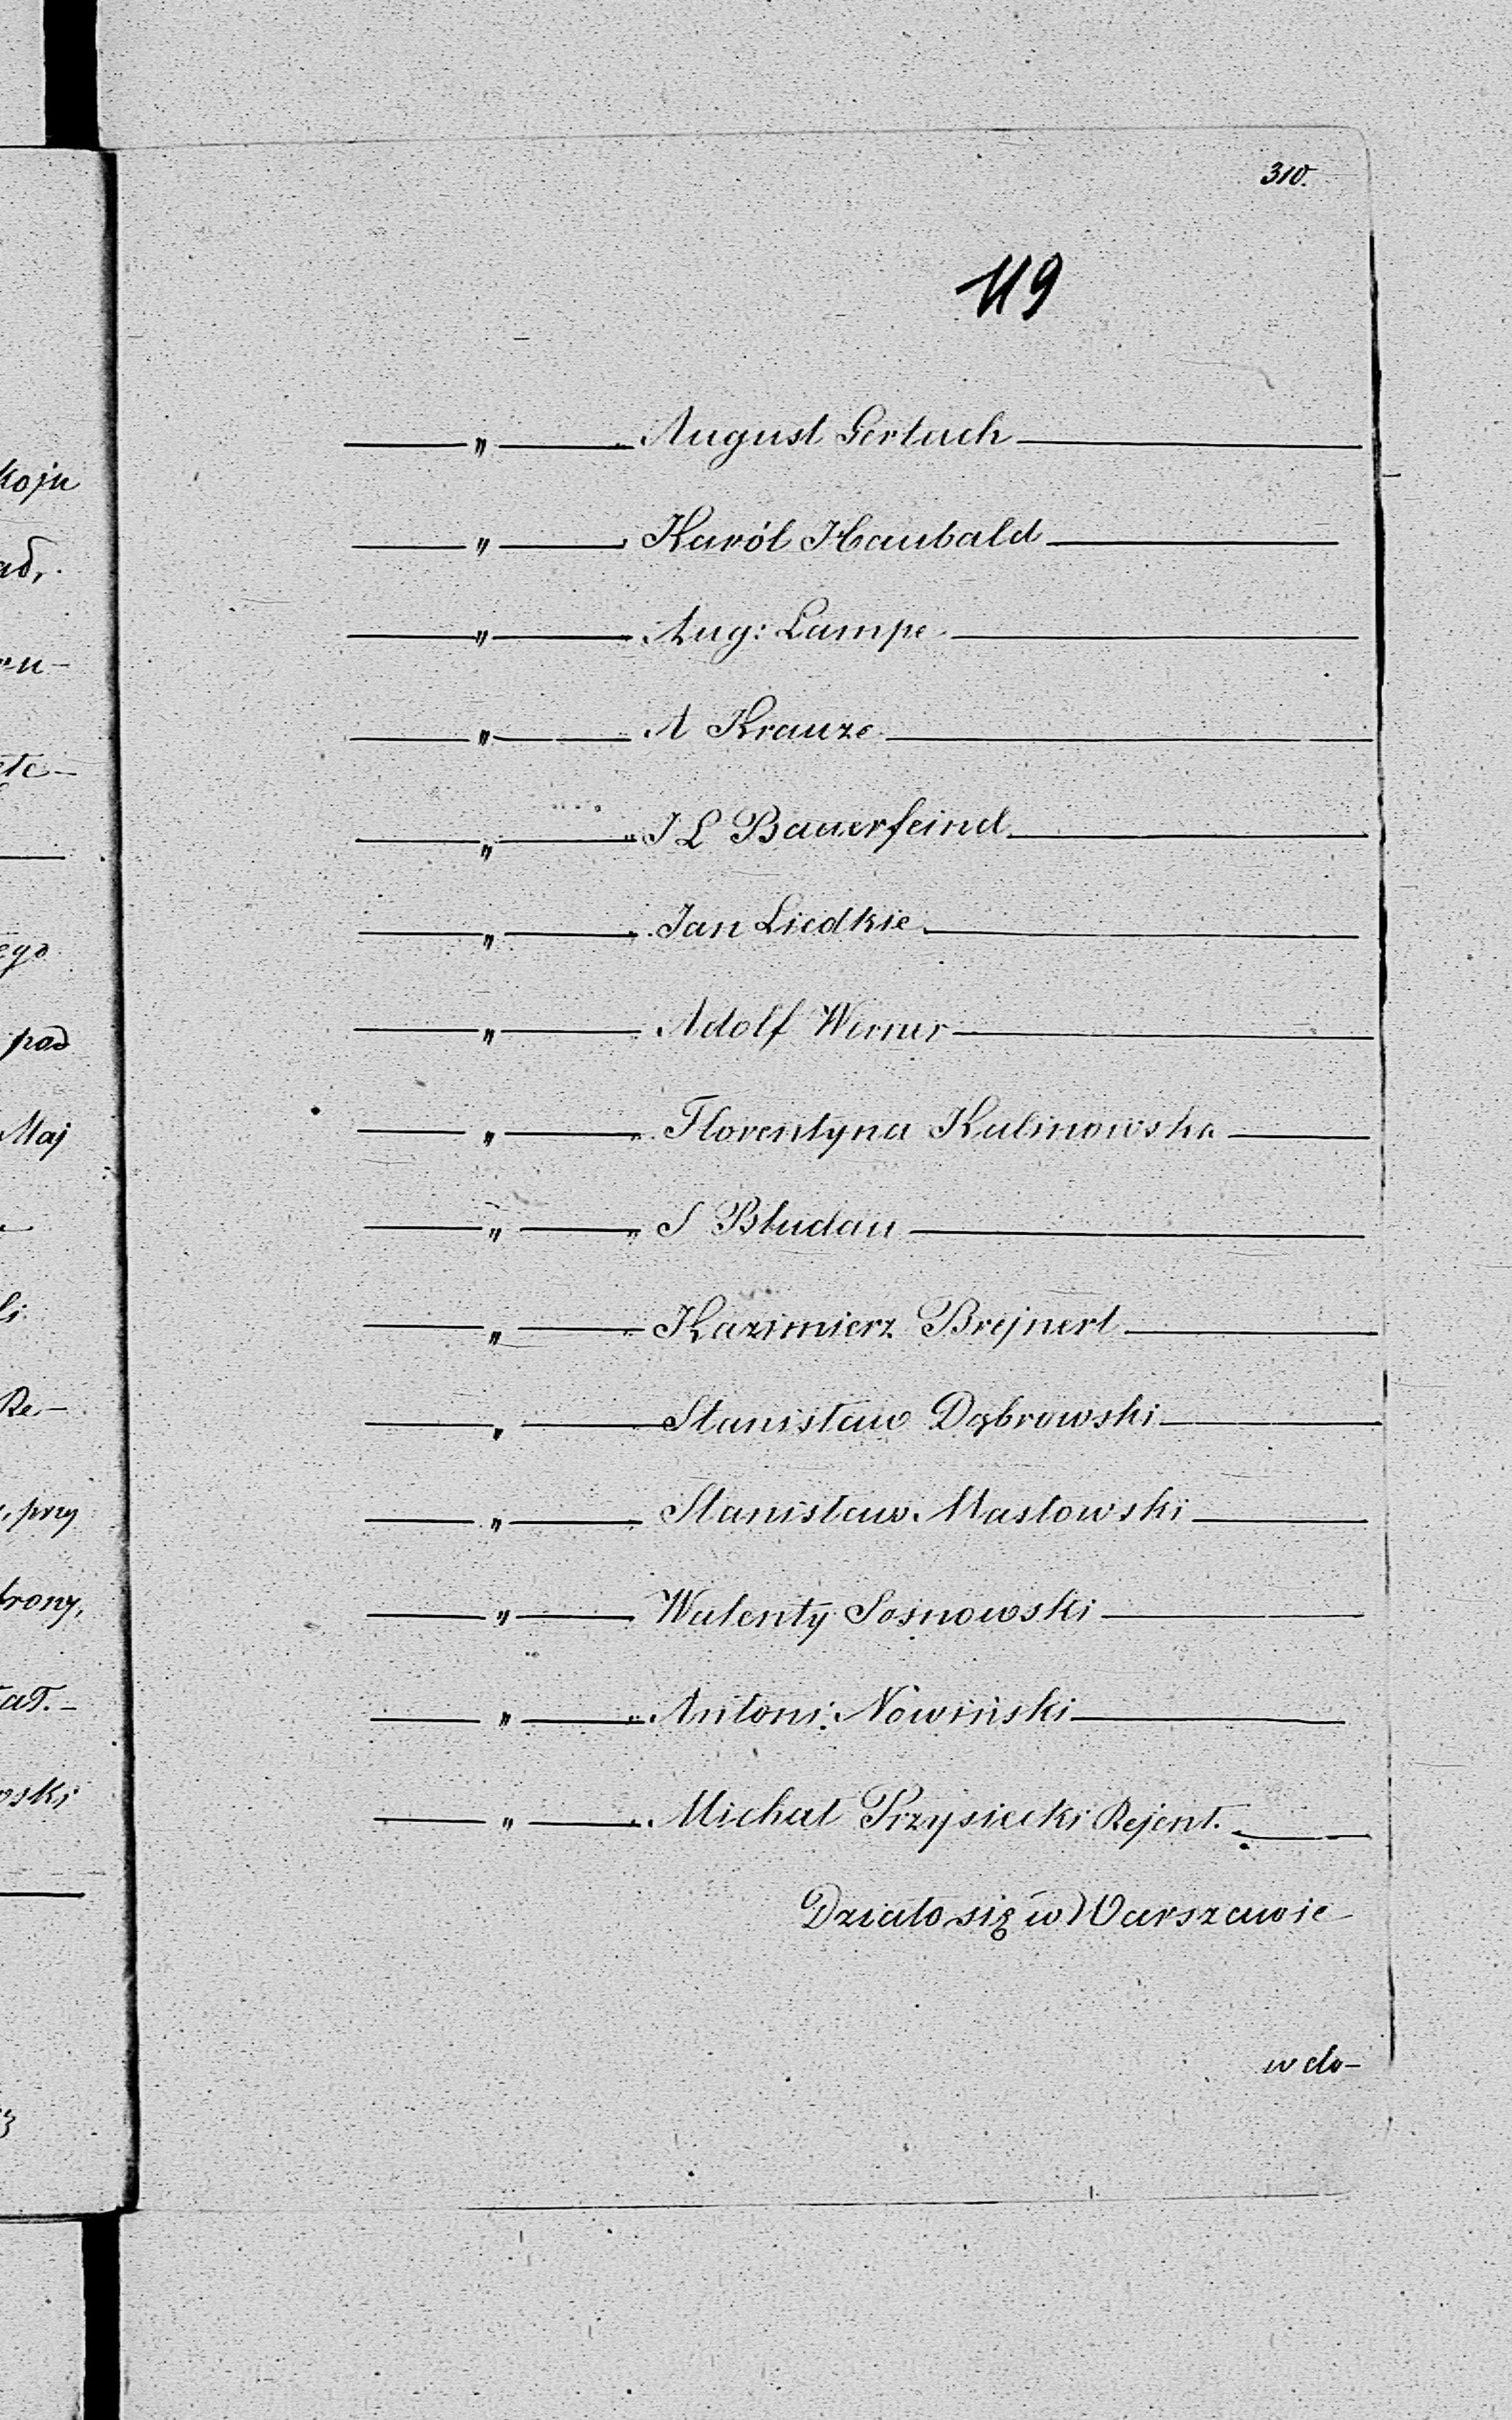 310.
119
— " — „ August Gerlach —
— " — „ Karól Haubald —
— " — „ Aug: Lampe —
— " — „ A Krauze —
— " — „ J L Bauerfeind —
— " — „ Jan Liedkie —
— " — „ Adolf Werner —
— " — „ Florentyna Kalinowska —
— " — „ S Bludau —
— " — „ Kazimierz Brejnert —
— " — Stanisław Dąbrowski —
— " — „ Stanisław Masłowski —
— " — Walenty Sosnowski —
— " — „ Antoni Nowiński —
— " — „ Michał Przysiecki Rejent. —
Działo się w Warszawie
w do-
koju
ego
pod
Maj
Re-
przy